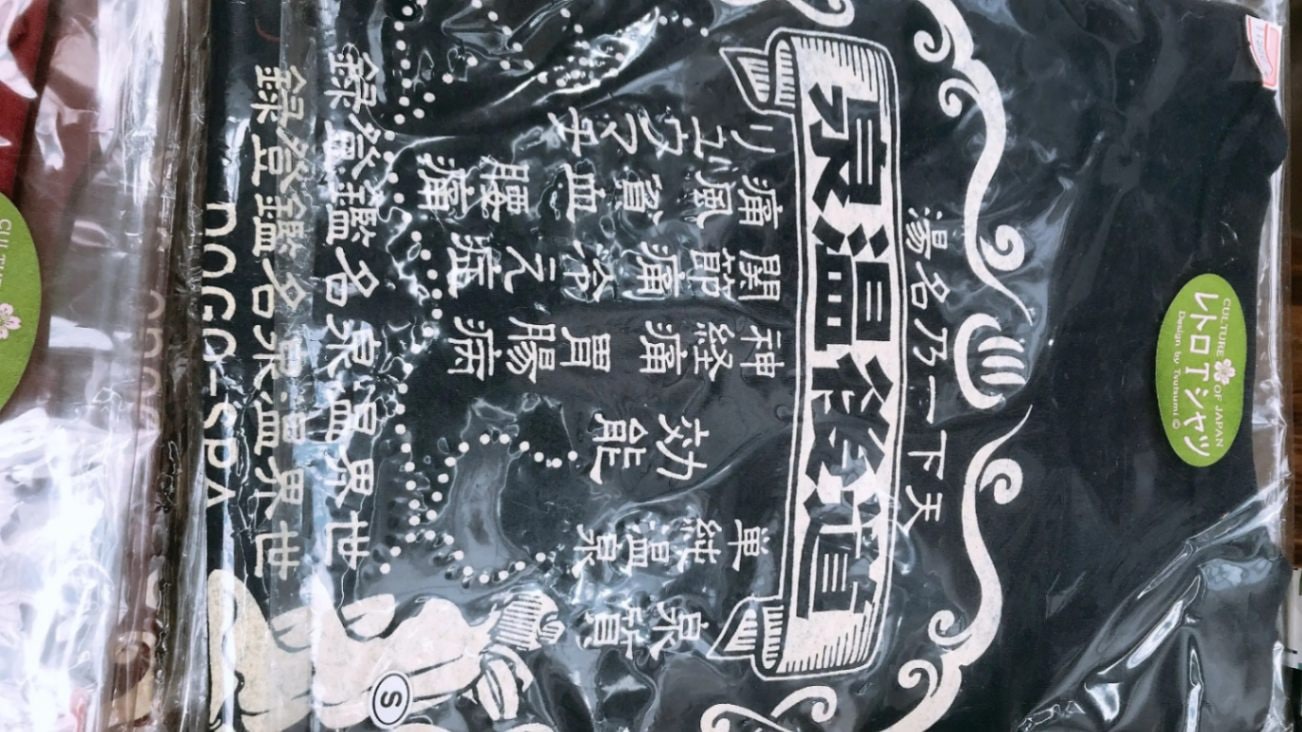 CULTURE OF JAPAN
レトロTシャツ
Design by Tsutsumi ©
天下一乃名湯
道後温泉
泉質
単純温泉
効能
神経痛 胃腸病
関節痛 冷え症
痛風 貧血 腰痛
リュウマチ
世界温泉名鑑登録
世界温泉名鑑登録
DOGO-SPA
S